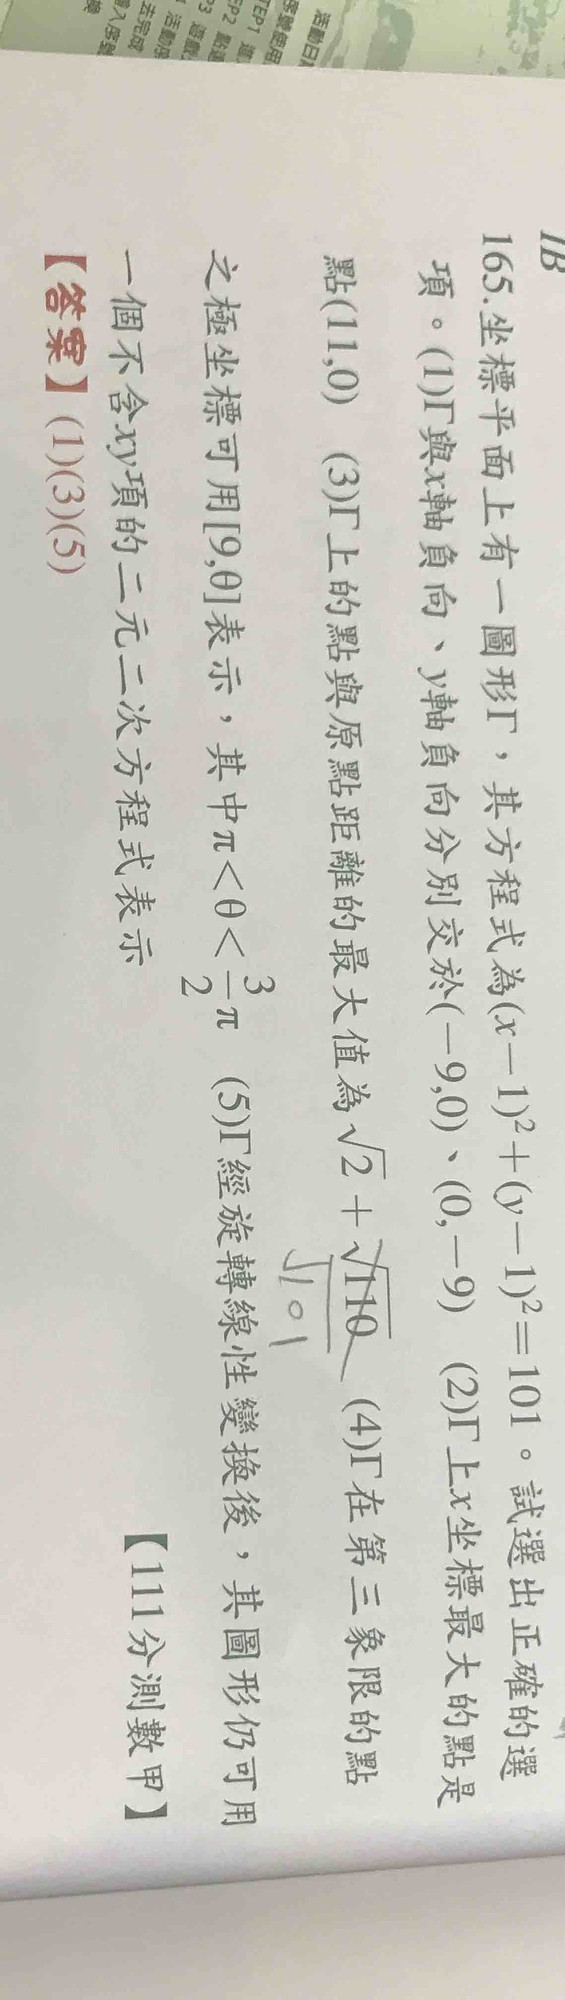 165.坐標平面上有一圖形Γ，其方程式為(x－1)²＋(y－1)²＝101。試選出正確的選
項。(1)Γ與x軸負向、y軸負向分別交於(－9,0)、(0,－9) (2)Γ上x坐標最大的點是
點(11,0) (3)Γ上的點與原點距離的最大值為√2＋√110 (4)Γ在第三象限的點
√101
之極坐標可用[9,θ]表示，其中π＜θ＜3/2π (5)Γ經旋轉線性變換後，其圖形仍可用
一個不含xy項的二元二次方程式表示
【111分測數甲】
【答案】(1)(3)(5)